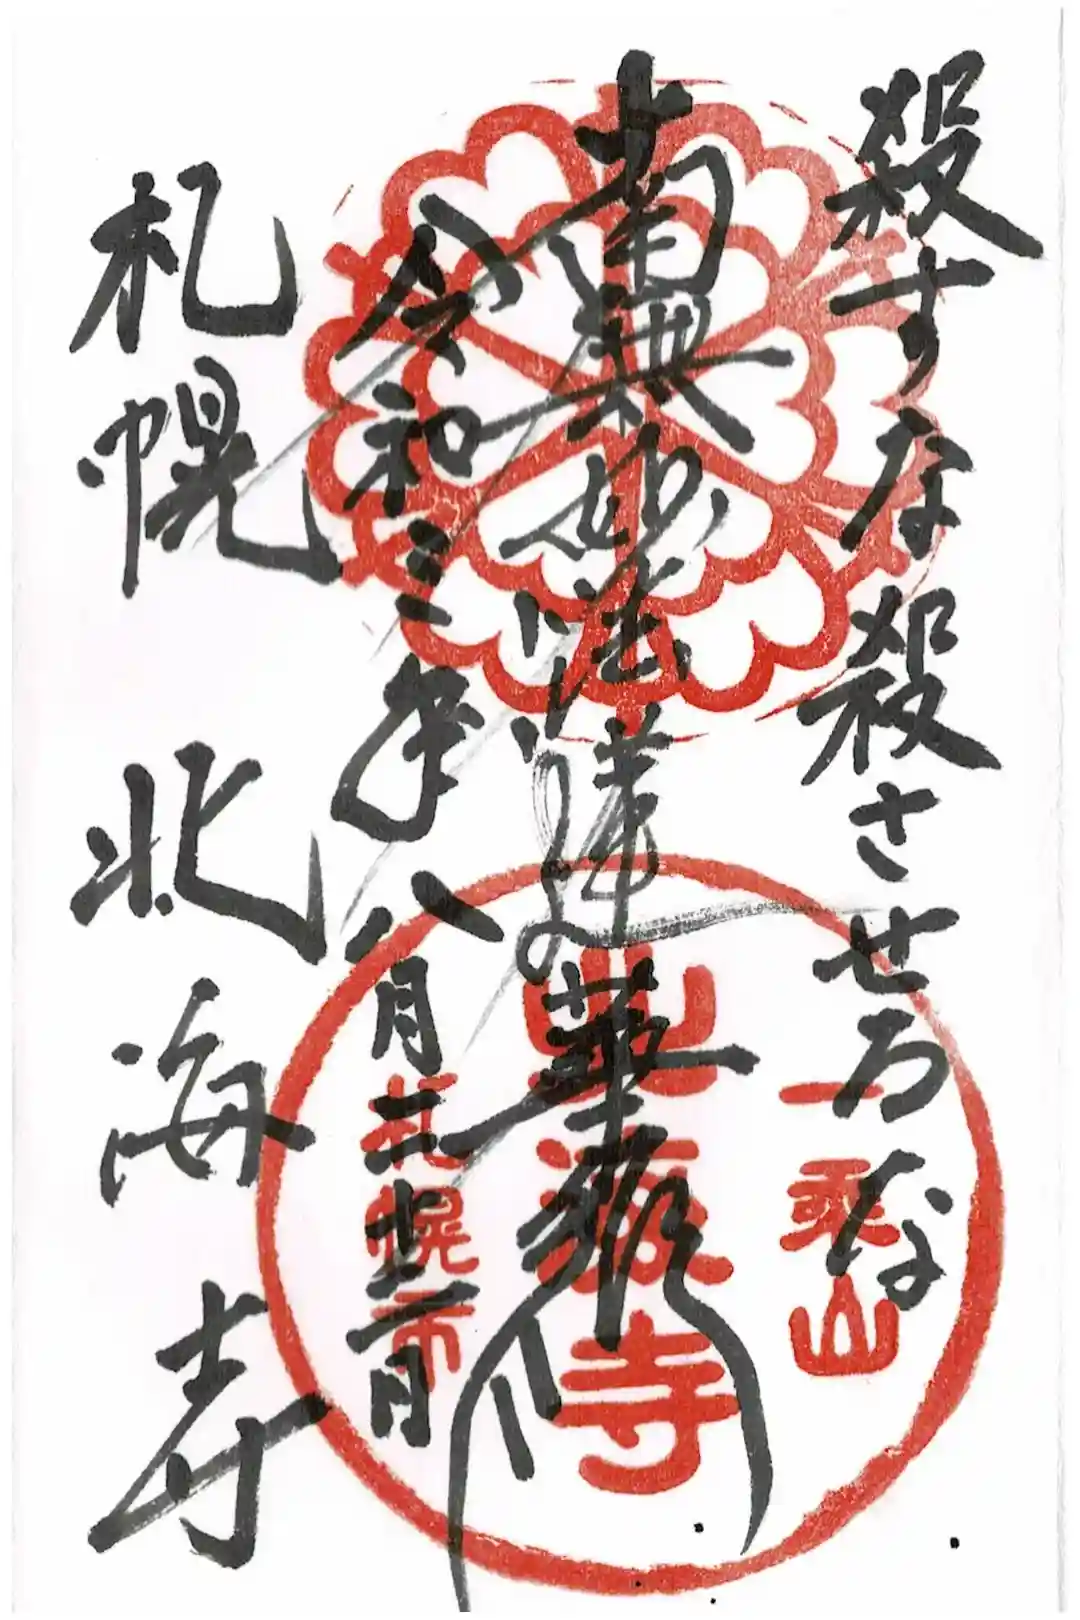 殺すな殺させるな
南無妙法蓮華経
令和三年八月二十二日
札幌 北海寺
一乗山
北海寺
札幌市